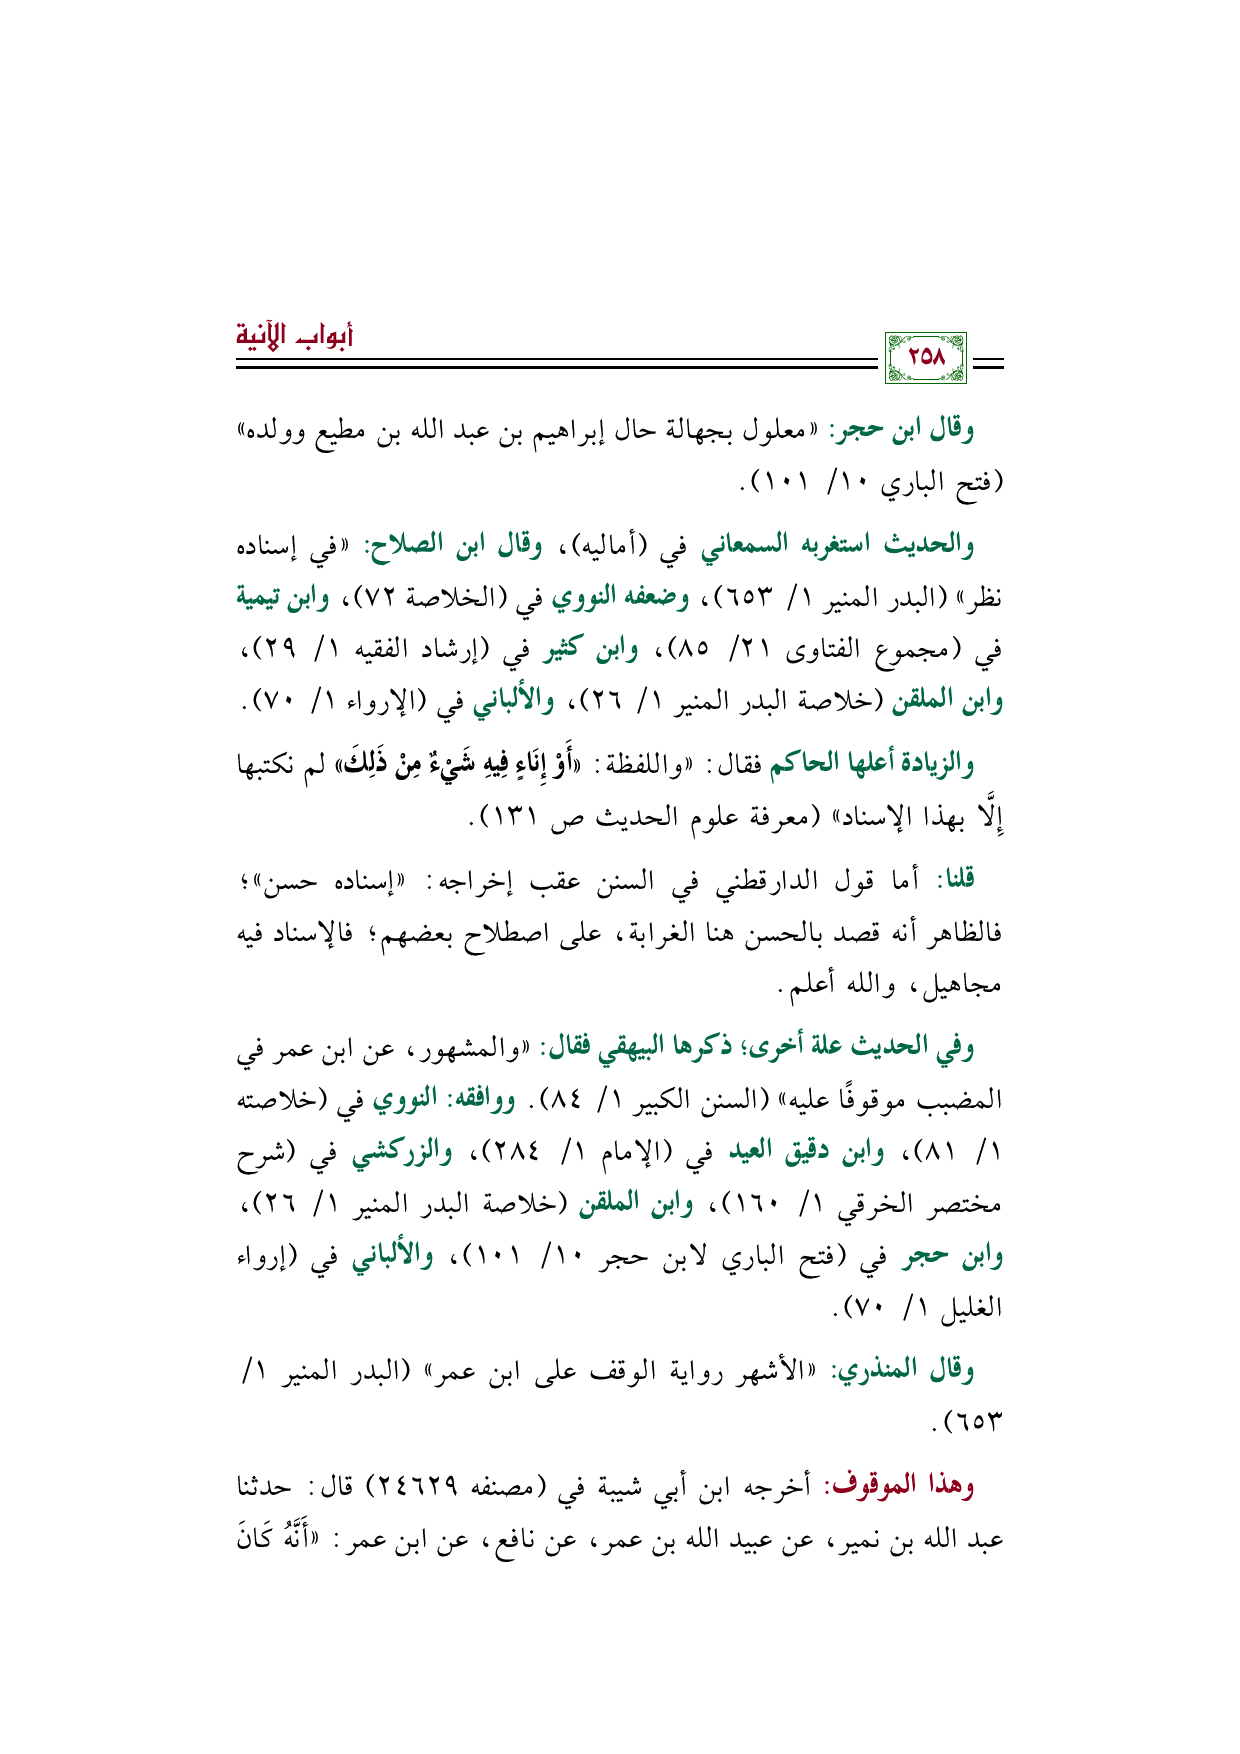 أبواب الآنية
٢٥٨
وقال ابن حجر: «معلول بجهالة حال إبراهيم بن عبد الله بن مطيع وولده»
(فتح الباري ١٠/ ١٠١).
والحديث استغربه السمعاني في (أماليه)، وقال ابن الصلاح: «في إسناده
نظر» (البدر المنير ١/ ٦٥٣)، وضعفه النووي في (الخلاصة ٧٢)، وابن تيمية
في (مجموع الفتاوى ٢١/ ٨٥)، وابن كثير في (إرشاد الفقيه ١/ ٢٩)،
وابن الملقن (خلاصة البدر المنير ١/ ٢٦)، والألباني في (الإرواء ١/ ٧٠).
والزيادة أعلها الحاكم فقال: «واللفظة: «أَوْ إِنَاءٍ فِيهِ شَيْءٌ مِنْ ذَلِكَ» لم نكتبها
إِلَّا بهذا الإسناد» (معرفة علوم الحديث ص ١٣١).
قلنا: أما قول الدارقطني في السنن عقب إخراجه: «إسناده حسن»؛
فالظاهر أنه قصد بالحسن هنا الغرابة، على اصطلاح بعضهم؛ فالإسناد فيه
مجاهيل، والله أعلم.
وفي الحديث علة أخرى؛ ذكرها البيهقي فقال: «والمشهور، عن ابن عمر في
المضبب موقوفًا عليه» (السنن الكبير ١/ ٨٤). ووافقه: النووي في (خلاصته
١/ ٨١)، وابن دقيق العيد في (الإمام ١/ ٢٨٤)، والزركشي في (شرح
مختصر الخرقي ١/ ١٦٠)، وابن الملقن (خلاصة البدر المنير ١/ ٢٦)،
وابن حجر في (فتح الباري لابن حجر ١٠/ ١٠١)، والألباني في (إرواء
الغليل ١/ ٧٠).
وقال المنذري: «الأشهر رواية الوقف على ابن عمر» (البدر المنير ١/
٦٥٣).
وهذا الموقوف: أخرجه ابن أبي شيبة في (مصنفه ٢٤٦٢٩) قال: حدثنا
عبد الله بن نمير، عن عبيد الله بن عمر، عن نافع، عن ابن عمر: «أَنَّهُ كَانَ